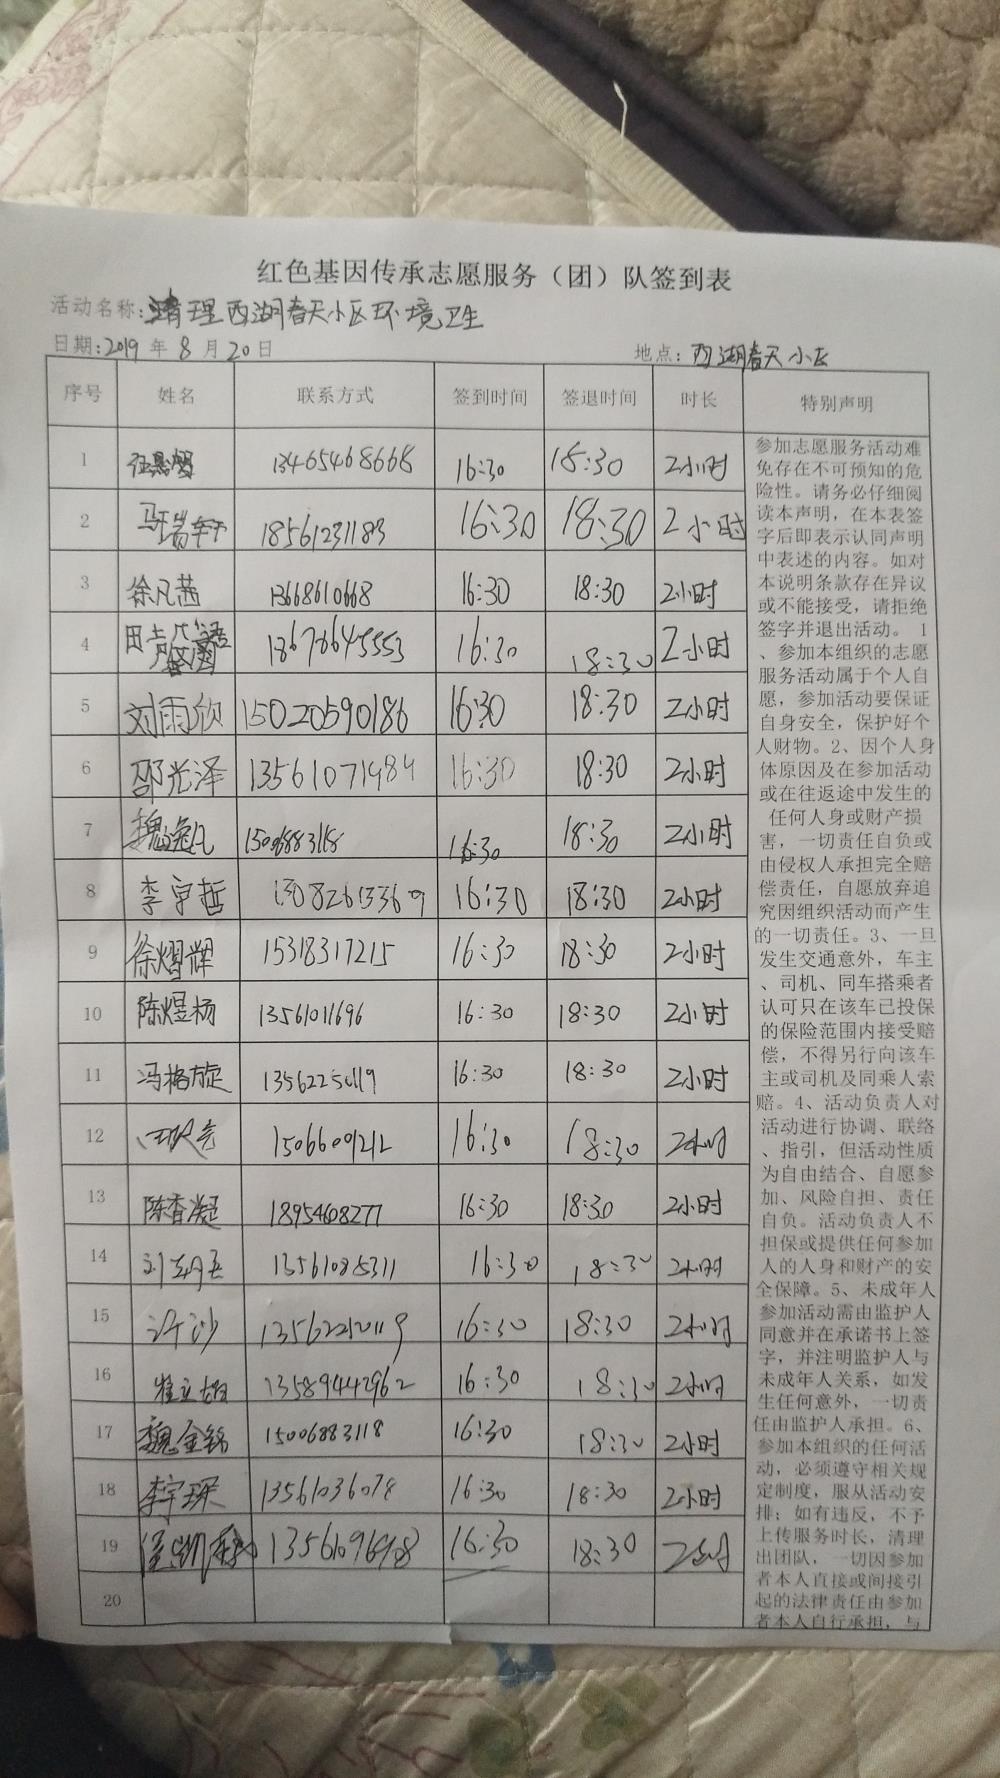 红色基因传承志愿服务（团）队签到表
活动名称:清理西湖春天小区环境卫生
日期:2019年8月20日 地点:西湖春天小区
序号 姓名 联系方式 签到时间 签退时间 时长 特别声明
1 13465468668 16:30 18:30 2小时
2 18561231183 16:30 18:30 2小时
3 徐凡茜 13668610668 16:30 18:30 2小时
4 18678645553 16:30 18:30 2小时
5 刘雨欣 15020590186 16:30 18:30 2小时
6 邵光泽 13561071984 16:30 18:30 2小时
7 魏逸凡 15006883118 16:30 18:30 2小时
8 李宇哲 13082613360 16:30 18:30 2小时
9 徐熠辉 15318317215 16:30 18:30 2小时
10 陈煜杨 13561011696 16:30 18:30 2小时
11 冯格旋 16:30 18:30 2小时
12 15066009212 16:30 18:30 2小时
13 陈香凝 18954608277 16:30 18:30 2小时
14 13561085311 16:30 18:30 2小时
15 许沙 16:30 18:30 2小时
16 13589442962 16:30 18:30 2小时
17 魏金铭 15006883118 16:30 18:30 2小时
18 李宇琛 13561036078 16:30 18:30 2小时
19 16:30 18:30 2小时
20
参加志愿服务活动难
免存在不可预知的危
险性。请务必仔细阅
读本声明，在本表签
字后即表示认同声明
中表述的内容。如对
本说明条款存在异议
或不能接受，请拒绝
签字并退出活动。 1
、参加本组织的志愿
服务活动属于个人自
愿，参加活动要保证
自身安全，保护好个
人财物。2、因个人身
体原因及在参加活动
或在往返途中发生的
任何人身或财产损
害，一切责任自负或
由侵权人承担完全赔
偿责任，自愿放弃追
究因组织活动而产生
的一切责任。3、一旦
发生交通意外，车主
、司机、同车搭乘者
认可只在该车已投保
的保险范围内接受赔
偿，不得另行向该车
主或司机及同乘人索
赔。4、活动负责人对
活动进行协调、联络
、指引，但活动性质
为自由结合、自愿参
加、风险自担、责任
自负。活动负责人不
担保或提供任何参加
人的人身和财产的安
全保障。5、未成年人
参加活动需由监护人
同意并在承诺书上签
字，并注明监护人与
未成年人关系，如发
生任何意外，一切责
任由监护人承担。6、
参加本组织的任何活
动，必须遵守相关规
定制度，服从活动安
排；如有违反，不予
上传服务时长，清理
出团队，一切因参加
者本人直接或间接引
起的法律责任由参加
者本人自行承担，与